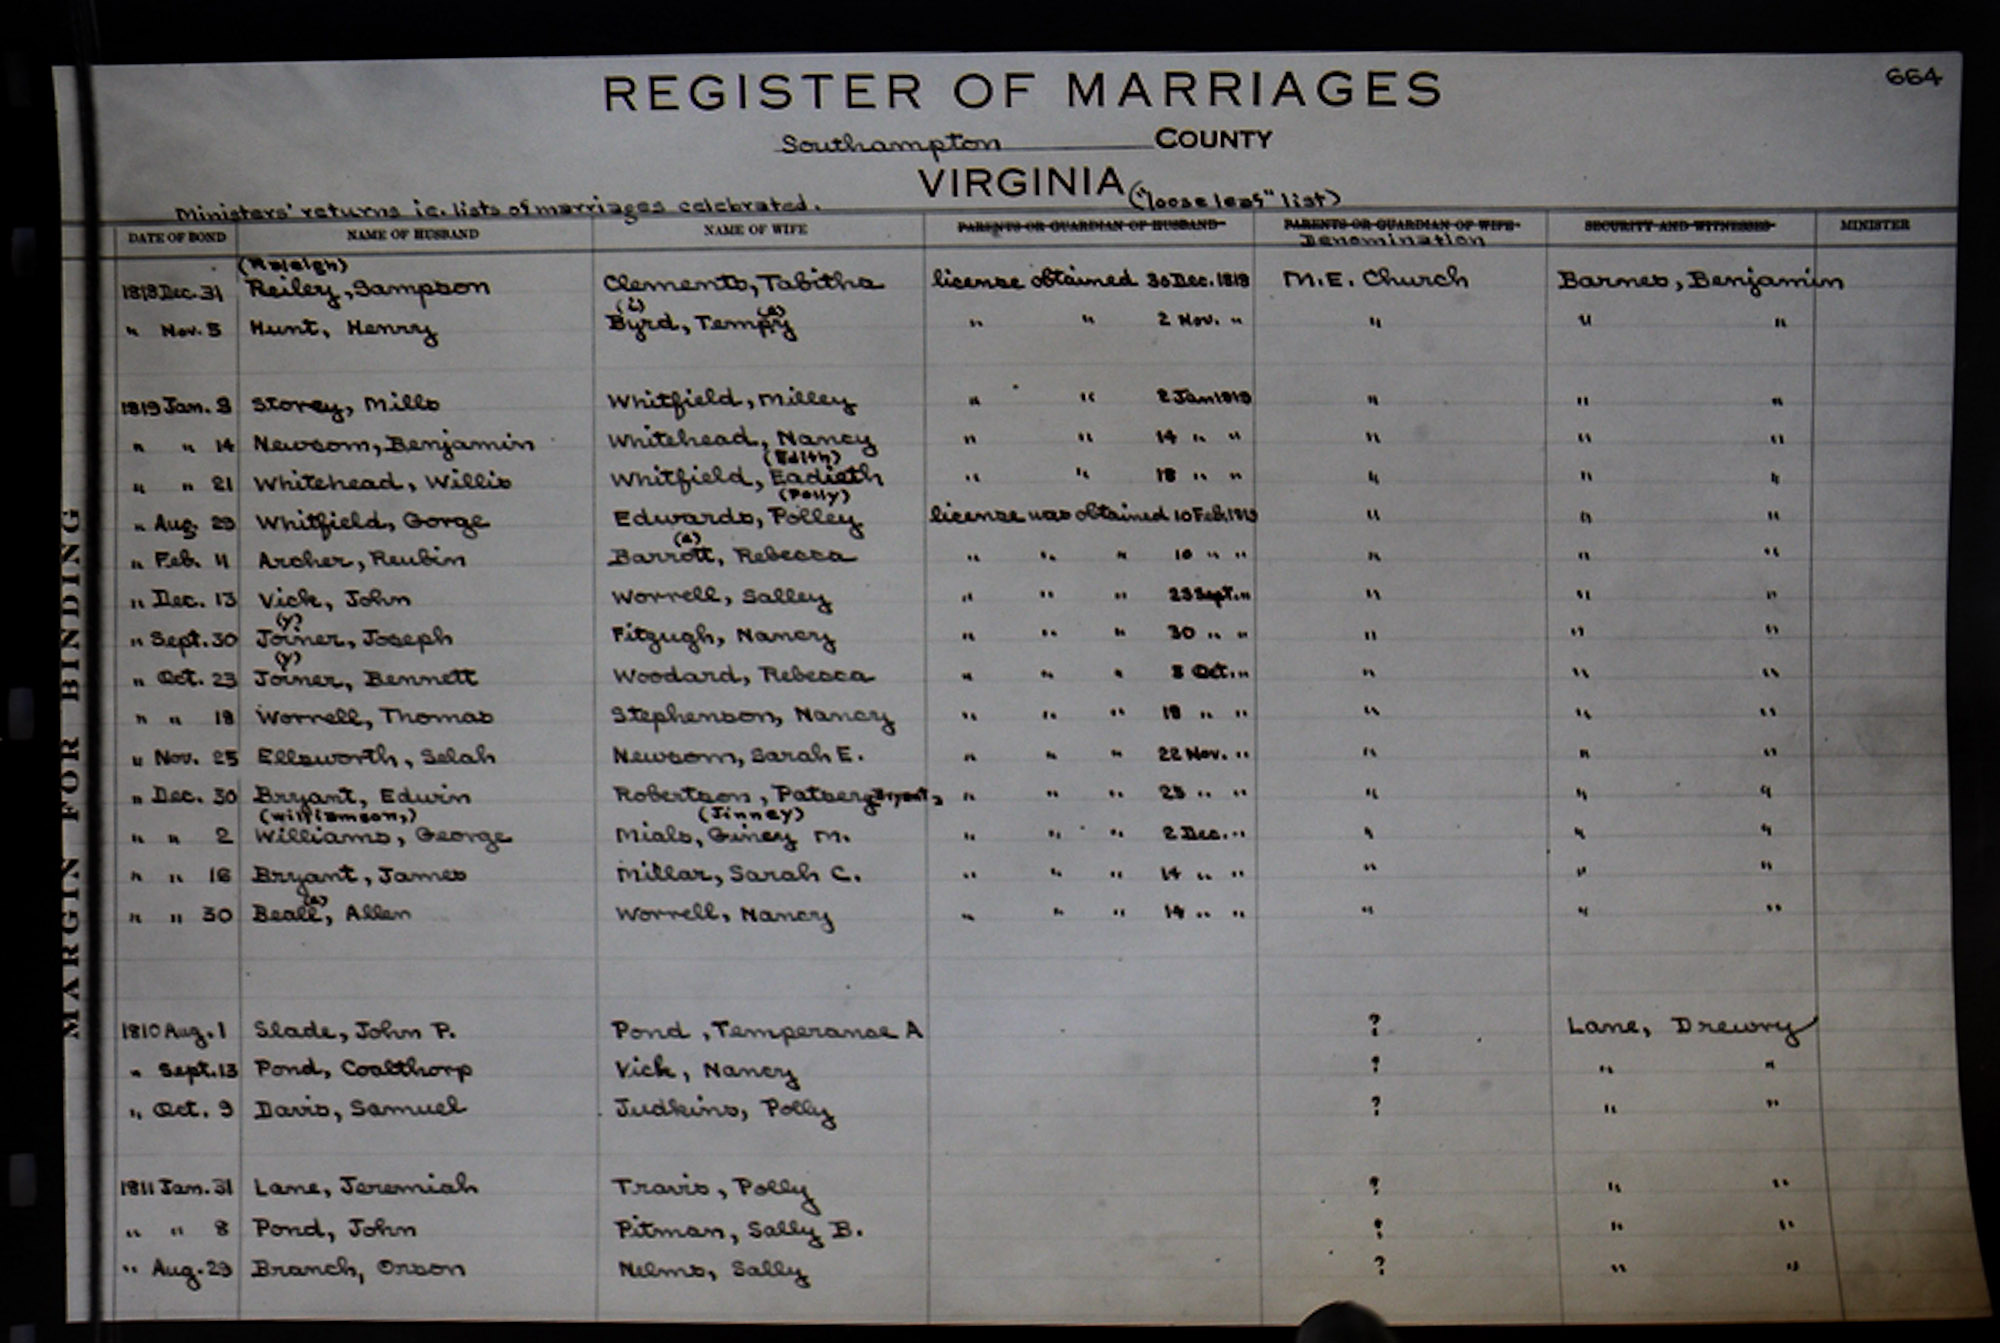 664
REGISTER OF MARRIAGES
Southampton COUNTY
VIRGINIA ("loose leaf" list)
Ministers' returns i.e. lists of marriages celebrated.
DATE OF BOND NAME OF HUSBAND NAME OF WIFE PARENTS OR GUARDIAN OF HUSBAND PARENTS OR GUARDIAN OF WIFE SECURITY AND WITNESSES MINISTER
Denomination
(Raleigh)
1818 Dec. 31 Reiley, Sampson Clements, Tabitha license obtained 30 Dec. 1818 M.E. Church Barnes, Benjamin
(i) (e)
" Nov. 5 Hunt, Henry Byrd, Tempy " " 2 Nov. " " " "
1819 Jan. 9 Storey, Mills Whitfield, Milley " " 2 Jan 1819 " " "
" " 14 Newsom, Benjamin Whitehead, Nancy " " 14 " " " " "
(Edith)
" " 21 Whitehead, Willis Whitfield, Eadieth " " 18 " " " " "
(Polly)
" Aug. 29 Whitfield, Gorge Edwards, Polley license was obtained 10 Feb. 1819 " " "
(e)
" Feb. 11 Archer, Reubin Barrott, Rebecca " " " 10 " " " " "
" Dec. 13 Vick, John Worrell, Salley " " " 23 Sept. " " " "
(y)
" Sept. 30 Joiner, Joseph Fitzugh, Nancy " " " 30 " " " " "
(y)
" Oct. 23 Joiner, Bennett Woodard, Rebecca " " " 8 Oct. " " " "
" " 18 Worrell, Thomas Stephenson, Nancy " " " 18 " " " " "
" Nov. 25 Ellsworth, Selah Newsom, Sarah E. " " " 22 Nov. " " " "
" Dec. 30 Bryant, Edwin Robertson, Patsey Bryant, " " " 25 " " " " "
(Williamson,) (Jinney)
" " 2 Williams, George Mials, Giney M. " " " 2 Dec. " " " "
" " 16 Bryant, James Millar, Sarah C. " " " 14 " " " " "
(e)
" " 30 Beall, Allen Worrell, Nancy " " " 14 " " " " "
1810 Aug. 1 Slade, John P. Pond, Temperance A ? Lane, Drewry
" Sept. 13 Pond, Coalthorp Vick, Nancy ? " "
" Oct. 9 Davis, Samuel Judkins, Polly ? " "
1811 Jan. 31 Lane, Jeremiah Travis, Polly ? " "
" " 8 Pond, John Pitman, Sally B. ? " "
" Aug. 29 Branch, Orson Nelms, Sally ? " "
MARGIN FOR BINDING